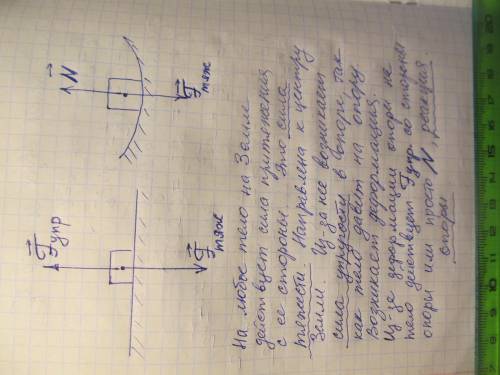 F упр
F тяж
N
F тяж
На любое тело на Земле
действует сила притяжения
с ее стороны. Это сила
тяжести. Направлена к центру
Земли. Из за нее возникает
сила упругости в опоре, так
как тело давит на опору.
Возникает деформация.
Из-за деформации опоры на
тело действует Fупр. со стороны
опоры или просто N, реакция
опоры